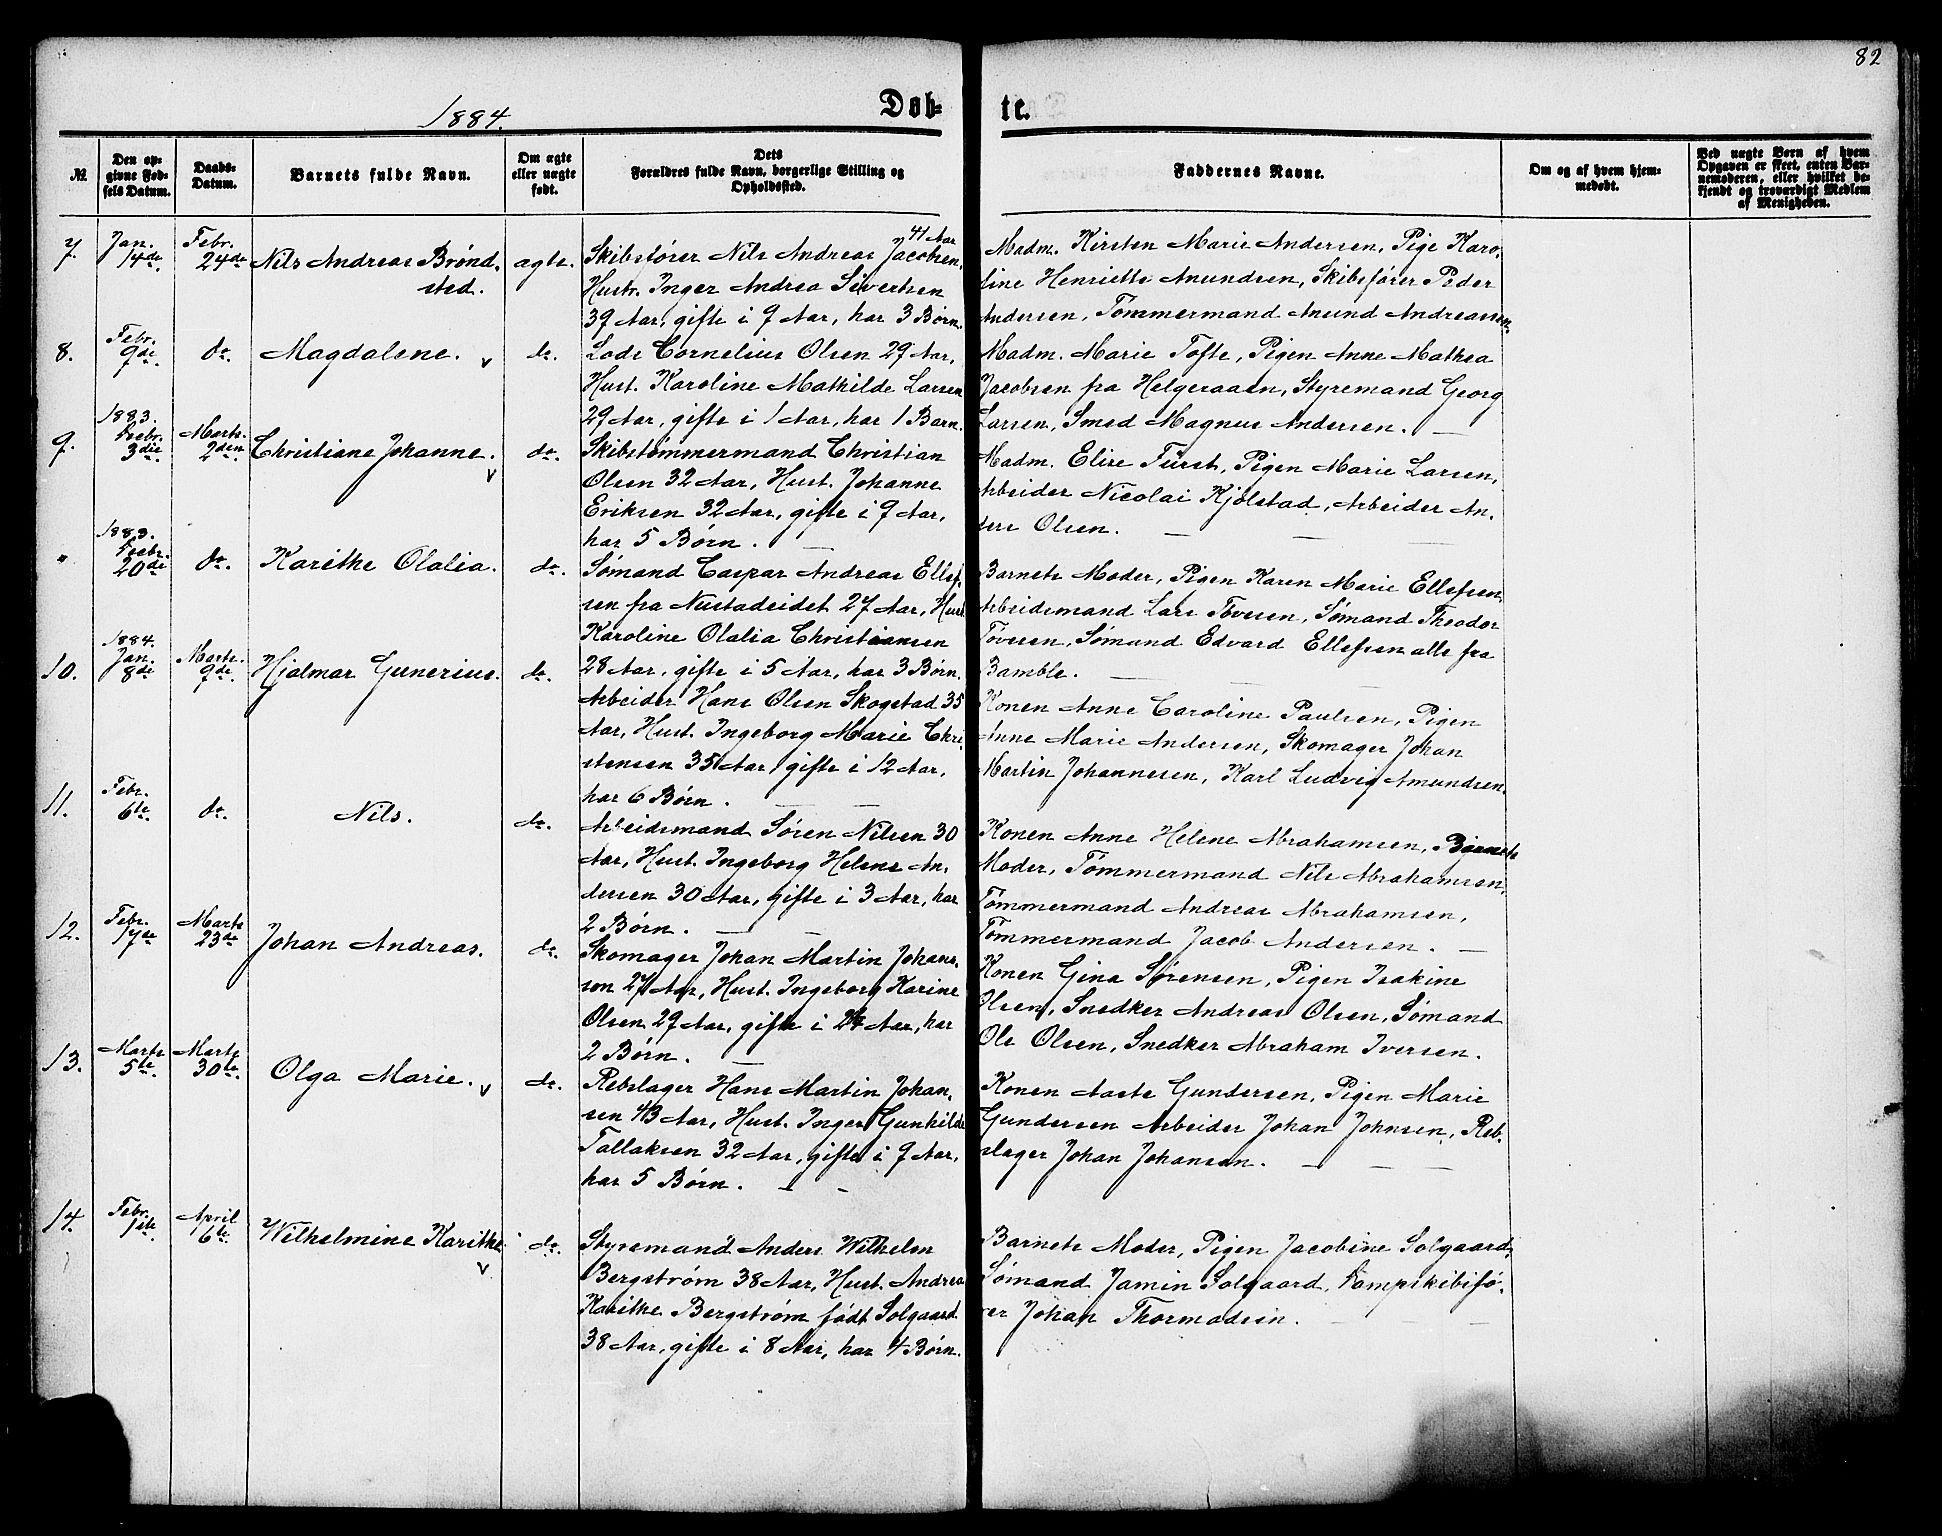 82
1884.
Døb-
te.
№
Den op-
givne Fød-
sels Datum.
Daabs-
Datum.
Barnets fulde Navn.
Om ægte
eller uægte
født.
Dets
Forældres fulde Navn, borgerlige Stilling og
Opholdssted.
Faddernes Navne.
Om og af hvem hjem-
medøbt.
Ved uægte Børn af hvem
Opgaven er skeet, enten Bar-
nemoderen, eller hvilket be-
kjendt og troværdigt Medlem
af Menigheden.
7.
Jan.
14de.
Febr.
24de
Nils Andreas Brønd-
sted.
ægte.
41 Aar
Skibsfører Nils Andreas Jacobsen,
Hustr. Inger Andrea Sivertsen
39 Aar, gifte i 9 Aar, har 3 Børn.
Madm. Kirsten Marie Andersen, Pige Karo-
line Henriette Amundsen, Skibsfører Peder
Andersen, Tømmermand Anund Andreassen.
8.
Febr.
9de.
do.
Magdalene.
do.
Lods Cornelius Olsen 29 Aar,
Hust. Karoline Mathilde Larsen
29 Aar, gifte i 1 Aar, har 1 Barn.
Madm. Marie Tofte, Pigen Anne Mathea
Jacobsen fra Helgeraaen, Styremand Georg
Larsen, Smed Magnus Andersen. —
9.
1883.
Decbr.
3die.
Marts.
2den.
Christiane Johanne.
do.
Skibstømmermand Christian
Olsen 32 Aar, Hust. Johanne
Eriksen 32 Aar, gifte i 9 Aar,
har 5 Børn. —
Madm. Elise Fürst, Pigen Marie Larsen,
Arbeider Nicolai Kjølstad, Arbeider An-
ders Olsen. — — —
"
1883.
Decbr.
20de
do.
Karithe Olalia.
do.
Sømand Caspar Andreas Ellef-
sen fra Nustadeidet 27 Aar, Hust.
Karoline Olalia Christiansen
28 Aar, gifte i 5 Aar, har 3 Børn.
Barnets Moder, Pigen Karen Marie Ellefsen,
Arbeidsmand Lars Tovesen, Sømand Theodor
Tovesen, Sømand Edvard Ellefsen alle fra
Bamble. — — —
10.
1884.
Jan.
8de
Marts.
9de.
Hjalmar Gunerius.
do.
Arbeider Hans Olsen Skogstad 35
Aar, Hust. Ingeborg Marie Chri-
stensen 35 Aar, gifte i 12 Aar,
har 6 Børn. — —
Konen Anne Caroline Paulsen, Pigen
Anne Marie Andersen, Skomager Johan
Martin Johannesen, Karl Ludvig Amundsen.
11.
Febr.
6te.
do.
Nils.
do.
Arbeidsmand Søren Nilsen 30
Aar, Hust. Ingeborg Helene An-
dersen 30 Aar, gifte i 3 Aar, har
2 Børn. — —
Konen Anne Helene Abrahamsen, Barnets
Moder, Tømmermand Nils Abrahamsen,
Tømmermand Andreas Abrahamsen,
Tømmermand Jacob Andersen. —
12.
Febr.
17de
Marts
23de
Johan Andreas.
do.
Skomager Johan Martin Johans-
son 27 Aar, Hust. Ingeborg Karine
Olsen 29 Aar, gifte i 2 Aar, har
2 Børn. —
Konen Gina Sørensen, Pigen Isakine
Olsen, Snedker Andreas Olsen, Sømand
Ole Olsen, Snedker Abraham Iversen.
13.
Marts
5te.
Marts
30te.
Olga Marie.
do.
Rebslager Hans Martin Johan-
sen 43 Aar, Hust. Inger Gunhilde
Tallaksen 32 Aar, gifte i 9 Aar,
har 5 Børn. — —
Konen Aaste Gundersen, Pigen Marie
Gundersen Arbeider Johan Johnsen, Reb-
slager Johan Johansen. — — —
14.
Febr.
1ste.
April
6te.
Wilhelmine Karithe.
do.
Styremand Anders Wilhelm
Bergstrøm 38 Aar, Hust. Andrea
Karithe Bergstrøm født Solgaard
38 Aar, gifte i 8 Aar, har 4 Børn.
Barnets Moder, Pigen Jacobine Solgaard,
Sømand Jamin Solgaard, Dampskibsfø-
rer Johan Thormodsen. — — —